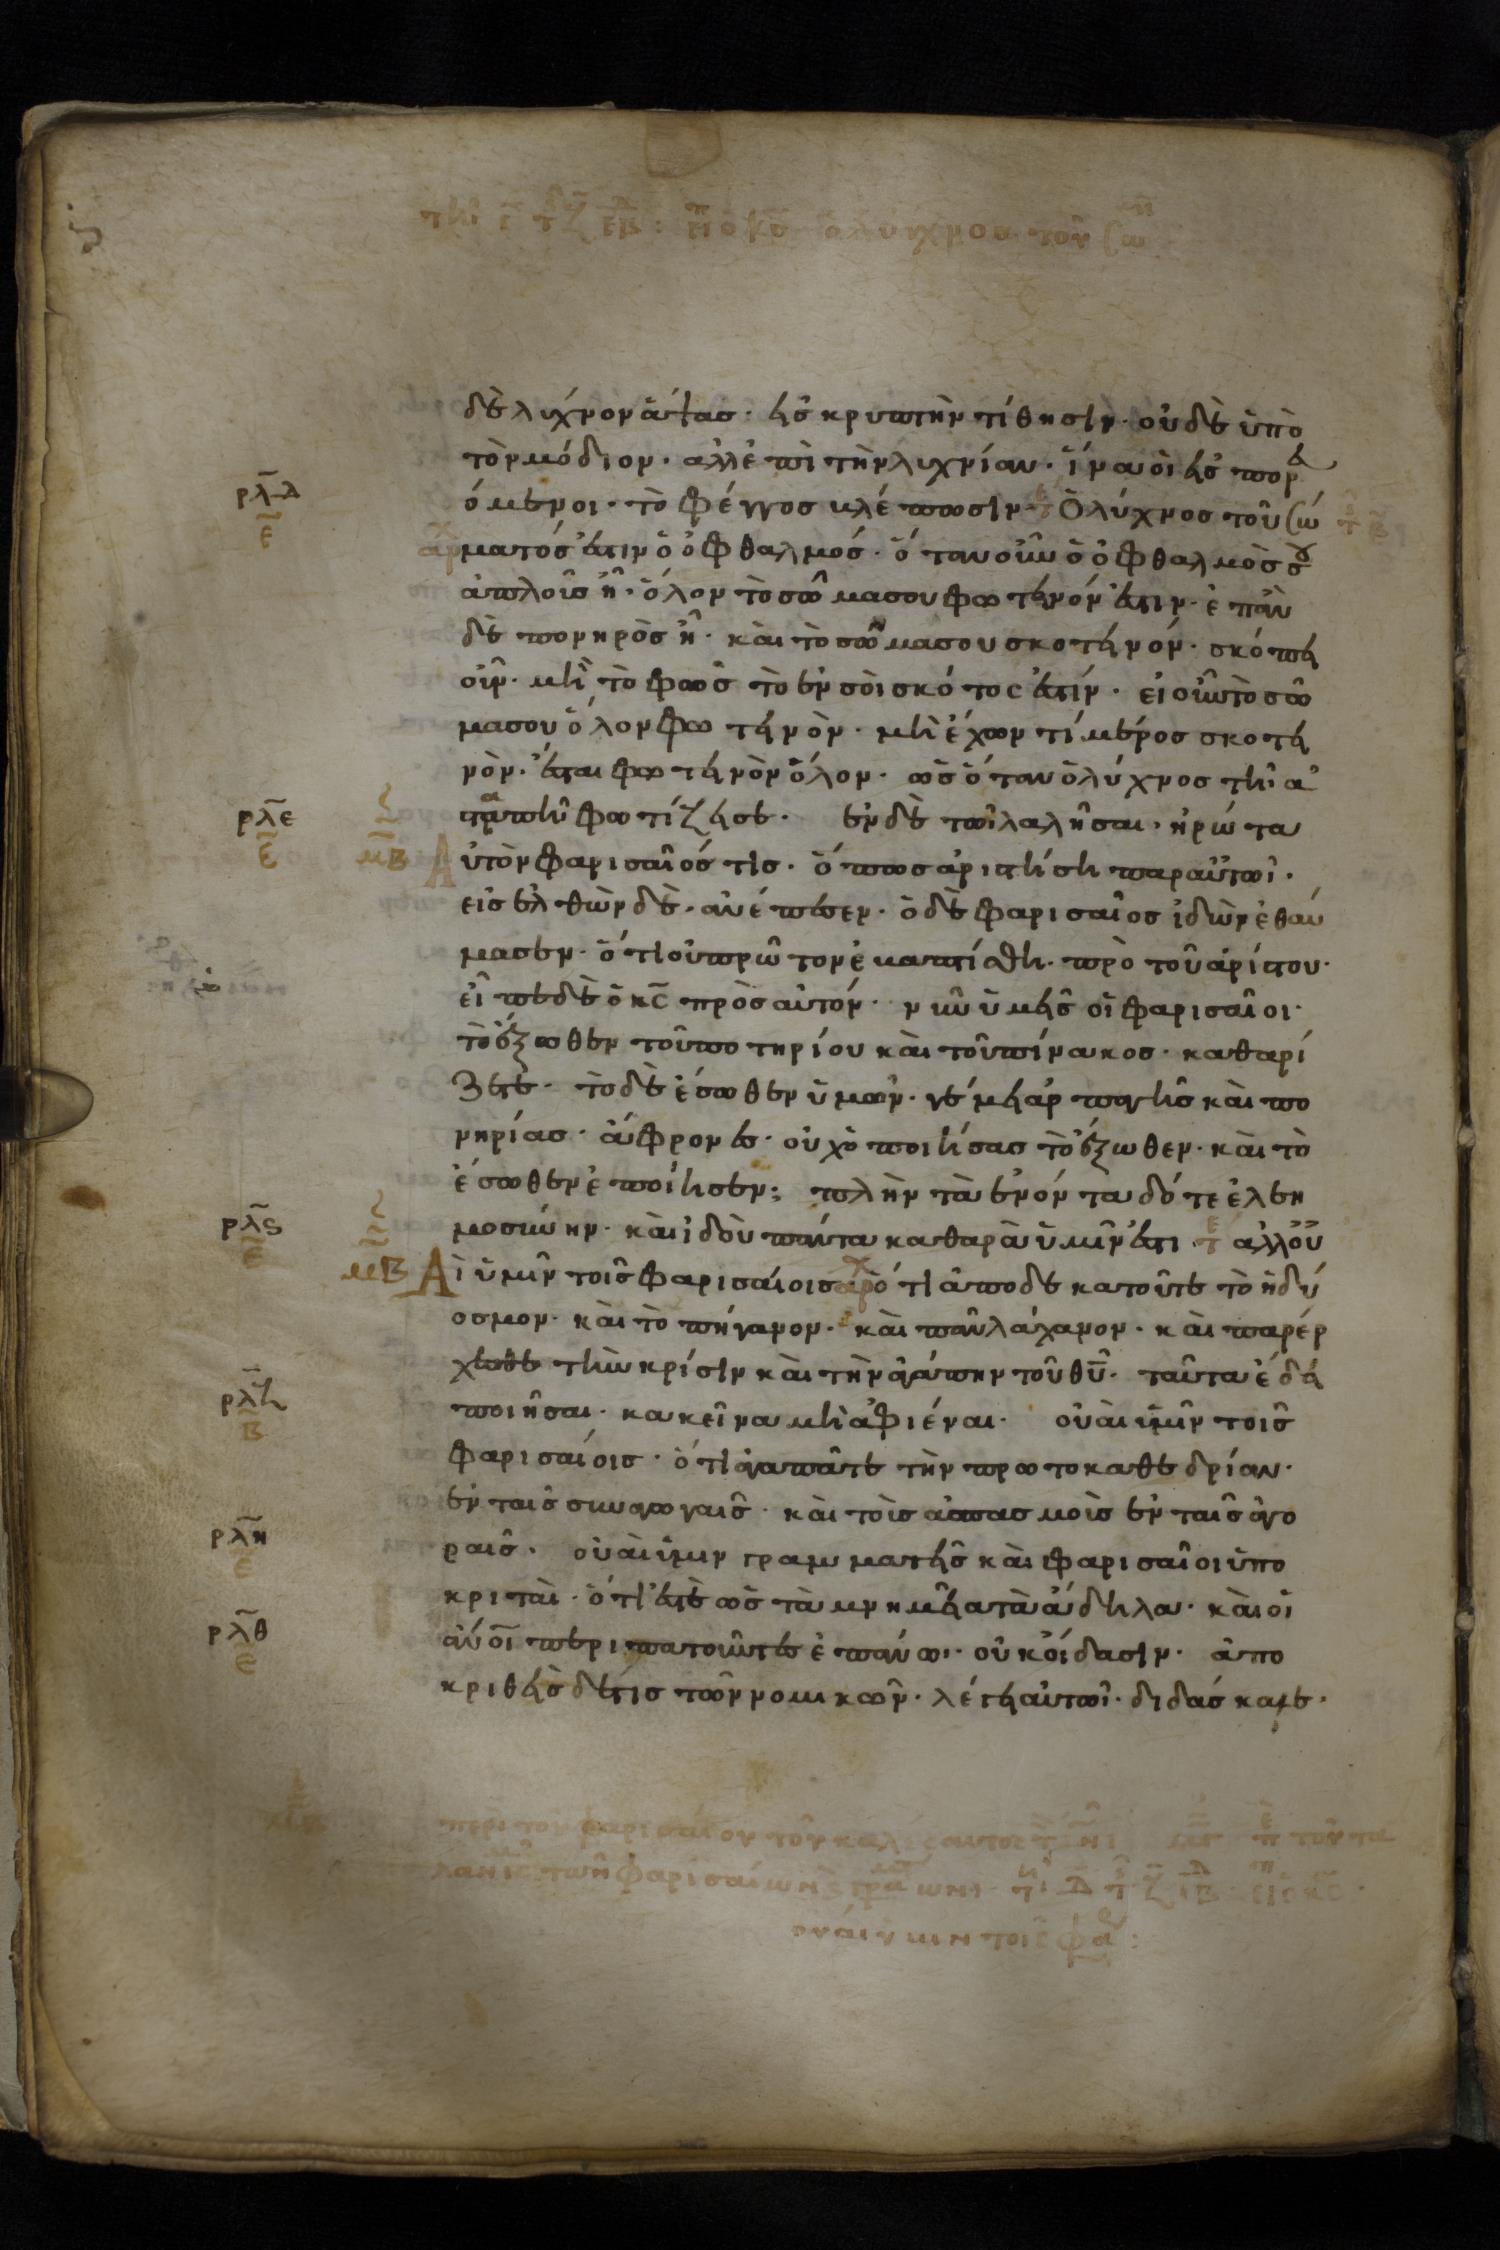 δὲ λύχνον ἅψας· εἰς κρυπτὴν τίθησιν· οὐδὲ ὑπὸ
τὸν μόδιον· ἀλλ' ἐπὶ τὴν λυχνίαν· ἵνα οἱ εἰς πορευ
όμενοι· τὸ φέγγος βλέπωσιν· Ὁ λύχνος τοῦ σώ
ρλδ
ε
ματός ἐστιν ὁ ὀφθαλμός· ὅταν οὖν ὁ ὀφθαλμὸς σου
ἁπλοῦς ἦ· ὅλον τὸ σῶμα σου φωτεινόν ἐστιν· ἐπὰν
δὲ πονηρὸς ἦ· καὶ τὸ σῶμα σου σκοτεινόν· σκόπει
οὖν· μὴ τὸ φῶς τὸ ἐν σοὶ σκότος ἐστίν· εἰ οὖν τὸ σῶ
μα σου ὅλον φωτεινὸν· μὴ ἔχων τί μέρος σκοτει
νὸν· ἔσται φωτεινὸν ὅλον· ὡς ὅταν ὁ λύχνος τῆ ἀ
ρλε
ε
μβ
στραπῆ φωτίζει σε· ἐν δὲ τῶ λαλῆσαι· ἠρώτα
Αὐτὸν φαρισαῖός τις· ὅπως ἀριστήση παρ' αὐτῶ·
εἰσελθὼν δὲ· ἀνέπεσεν· ὁ δὲ φαρισαῖος ἰδὼν ἐθαύ
μασεν· ὅτι οὐ πρῶτον ἐβαπτίσθη· πρὸ τοῦ ἀρίστου·
εἶπε δὲ ὁ κς πρὸς αὐτόν· νῦν ὑμεῖς οἱ φαρισαῖοι·
τὸ ἔξωθεν τοῦ ποτηρίου καὶ τοῦ πίνακος· καθαρί
ζετε· τὸ δὲ ἔσωθεν ὑμῶν· γέμει ἁρπαγῆς καὶ πο
νηρίας· ἄφρονες· οὐχ ὁ ποιήσας τὸ ἔξωθεν· καὶ τὸ
ἔσωθεν ἐποίησεν; πλὴν τὰ ἐνόντα δότε ἐλεη
ρλς
ε
μοσύνην· καὶ ἰδοὺ πάντα καθαρὰ ὑμῖν ἐστι· ἀλλ' οὐ
μβ
Αὶ ὑμῖν τοῖς φαρισαίοις ὅτι ἀποδεκατοῦτε τὸ ἡδύ
οσμον· καὶ τὸ πήγανον· καὶ πᾶν λάχανον· καὶ παρέρ
χεσθε τὴν κρίσιν καὶ τὴν ἀγάπην τοῦ θυ· ταῦτα ἔδει
ρλζ
β
ποιῆσαι· κακεῖνα μὴ ἀφιέναι· οὐαὶ ὑμῖν τοῖς
φαρισαίοις· ὅτι ἀγαπᾶτε τὴν πρωτοκαθεδρίαν·
ἐν ταῖς συναγωγαῖς· καὶ τοὺς ἀσπασμοὺς ἐν ταῖς ἀγο
ρλη
ε
ραῖς· οὐαὶ ὑμῖν γραμματεῖς καὶ φαρισαῖοι ὑπο
κριταὶ· ὅτι ἐστὲ ὡς τὰ μνημεῖα τὰ ἄδηλα· καὶ οἱ
ρλθ
ε
ἄνοι περιπατοῦντες ἐπάνω· οὐκ οἴδασιν· ἀπο
κριθεὶς δέ τις τῶν νομικῶν· λέγει αὐτῶ· διδάσκαλε·
περὶ τοῦ φαρισαίου τοῦ καλέσαντος
οὐαὶ ὑμῖν τοῖς φα: